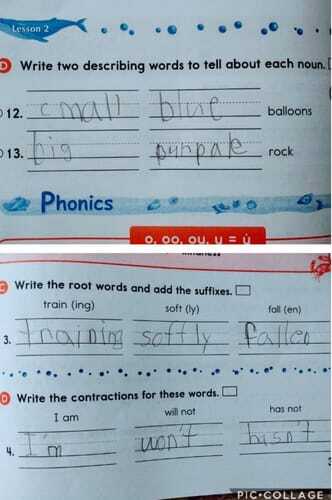 Lesson 2
D Write two describing words to tell about each noun.
12. cmall blue balloons
13. big purpale rock
Phonics
o, oo, ou, u = u̇
C Write the root words and add the suffixes.
train (ing) soft (ly) fall (en)
3. training softly fallen
D Write the contractions for these words.
I am will not has not
4. I'm won't hasn't
PIC-COLLAGE